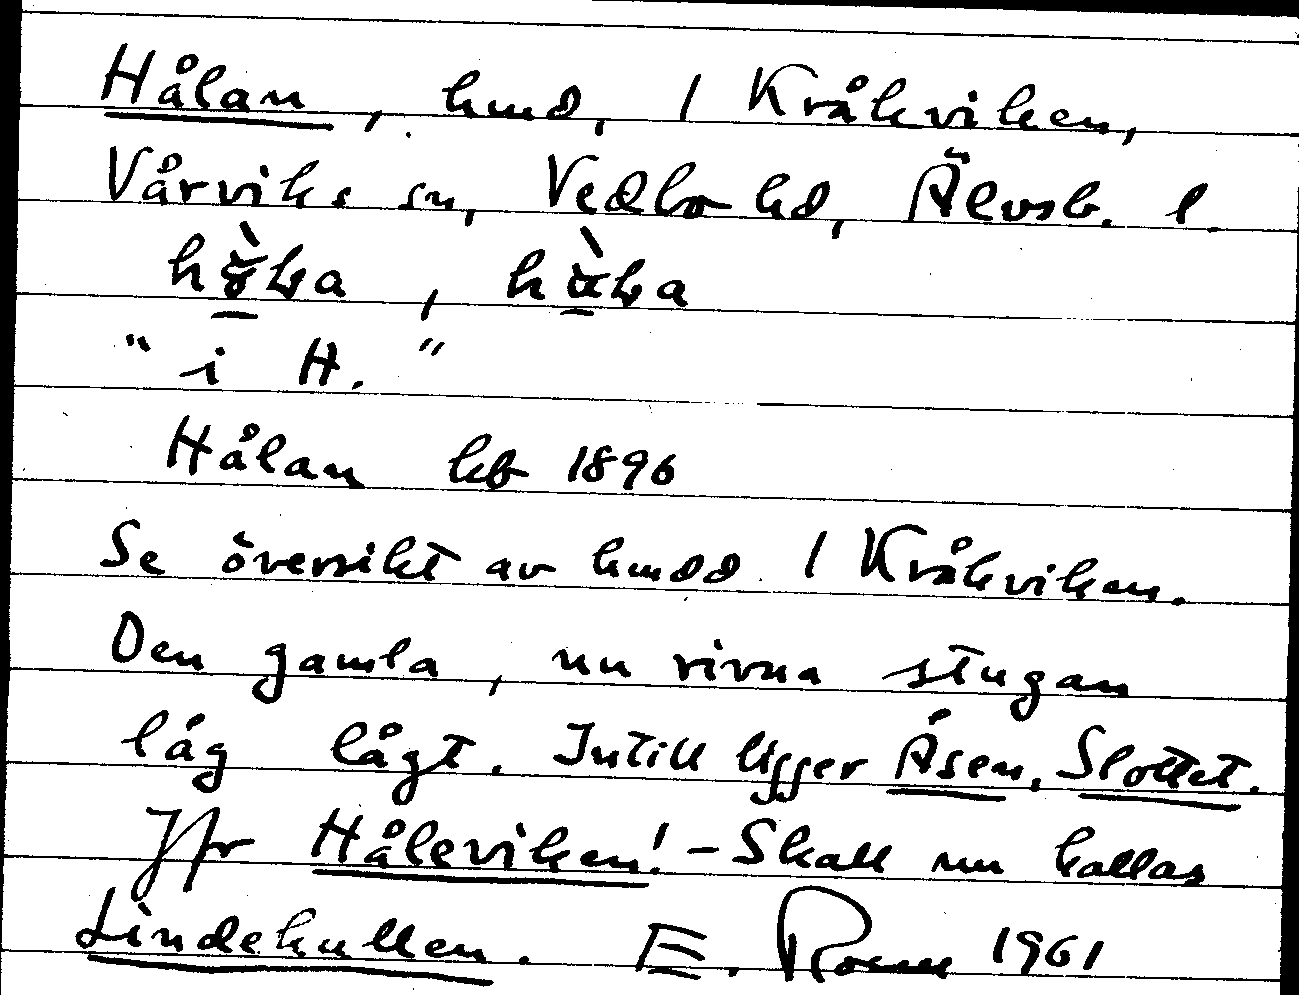 Hålan, hmd, 1 Kråkviken,
Vårviks sn, Vedbo hd, Älvsb. l.
"i H."
Hålan kb 1896
Se översikt av hmdd 1 Kråkviken.
Den gamla, nu rivna stugan
låg lågt. Intill ligger Åsen, Slottet.
Jfr Håleviken! - Skall nu kallas
Lindekullen. E. 1961